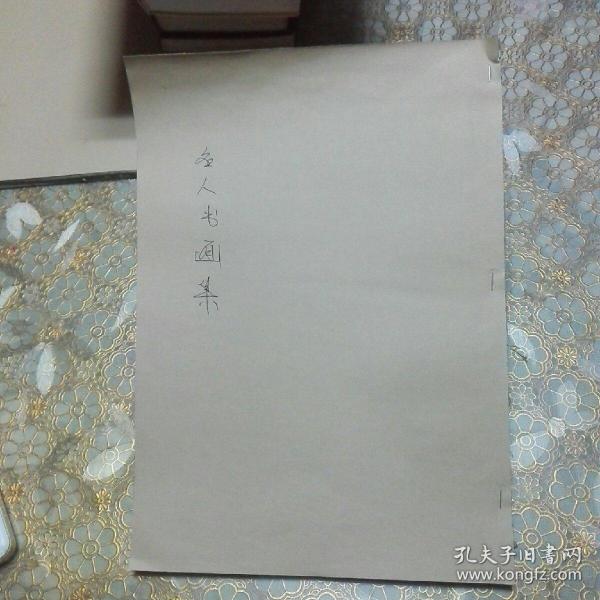 名人书画集
孔夫子旧書网
www.kongfz.com